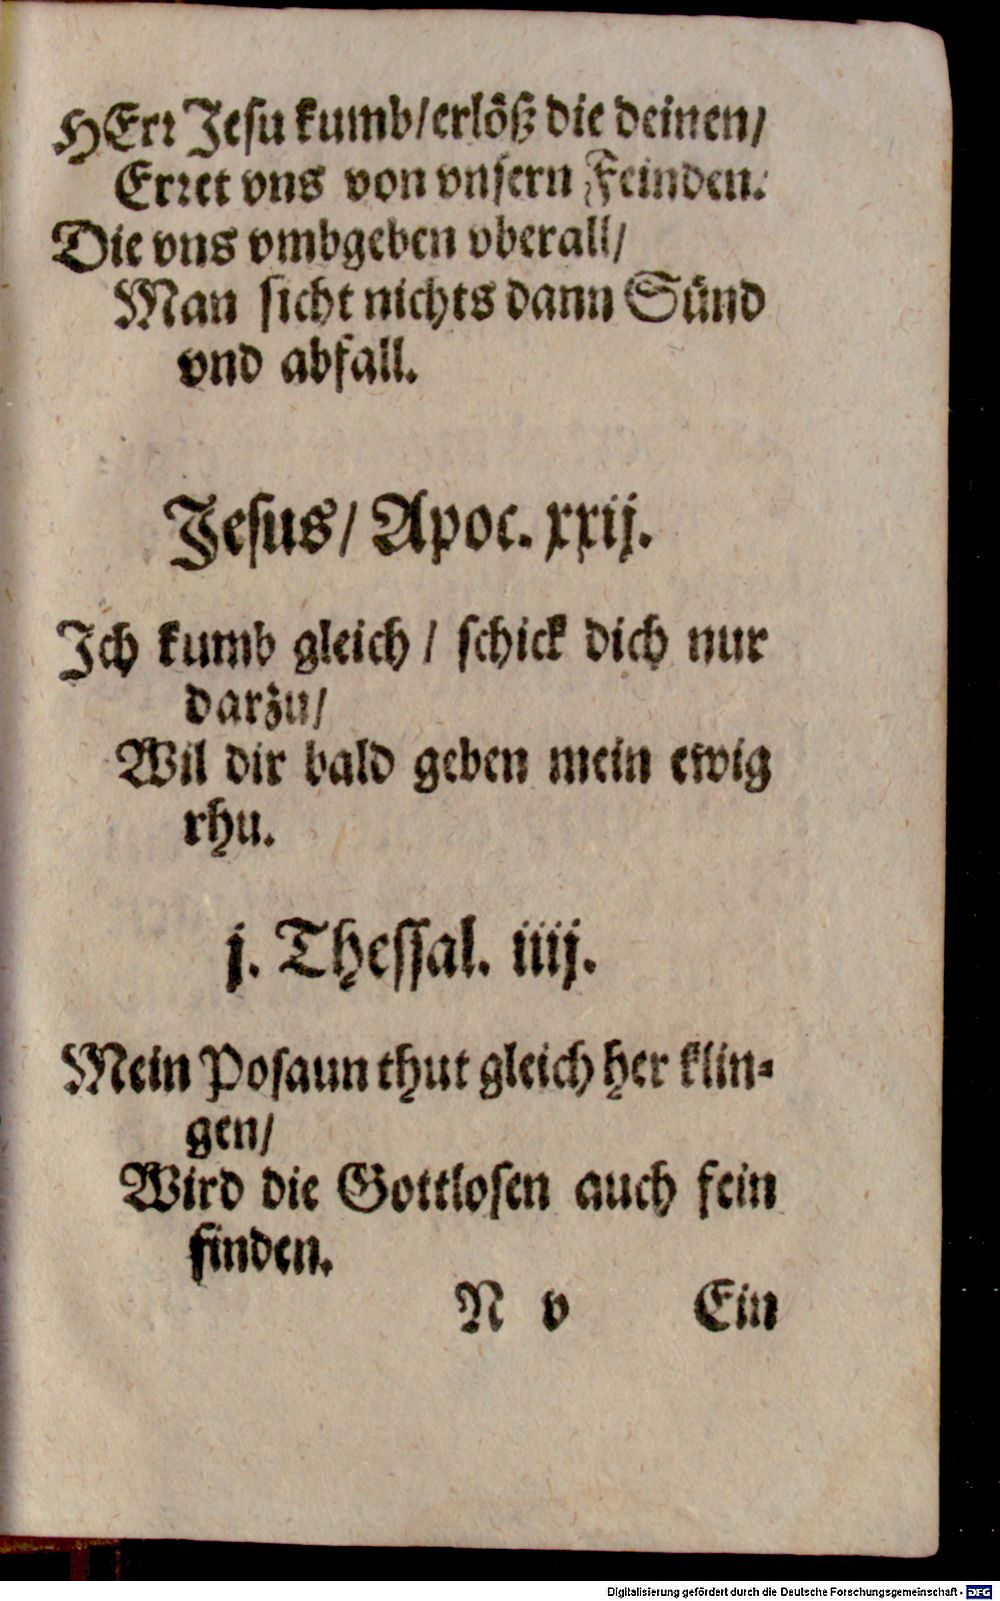 HErr Jesu kumb/erlöß die deinen/
Erret vns von vnsern Feinden.
Die vns vmbgeben vberall/
Man sicht nichts dann Sünd
vnd abfall.
Jesus/ Apoc. xxij.
Ich kumb gleich / schick dich nur
darzu/
Wil dir bald geben mein ewig
rhu.
j. Thessal. iiij.
Mein Posaun thut gleich her klin-
gen/
Wird die Gottlosen auch fein
finden.
N v Ein
Digitalisierung gefördert durch die Deutsche Forschungsgemeinschaft - DFG